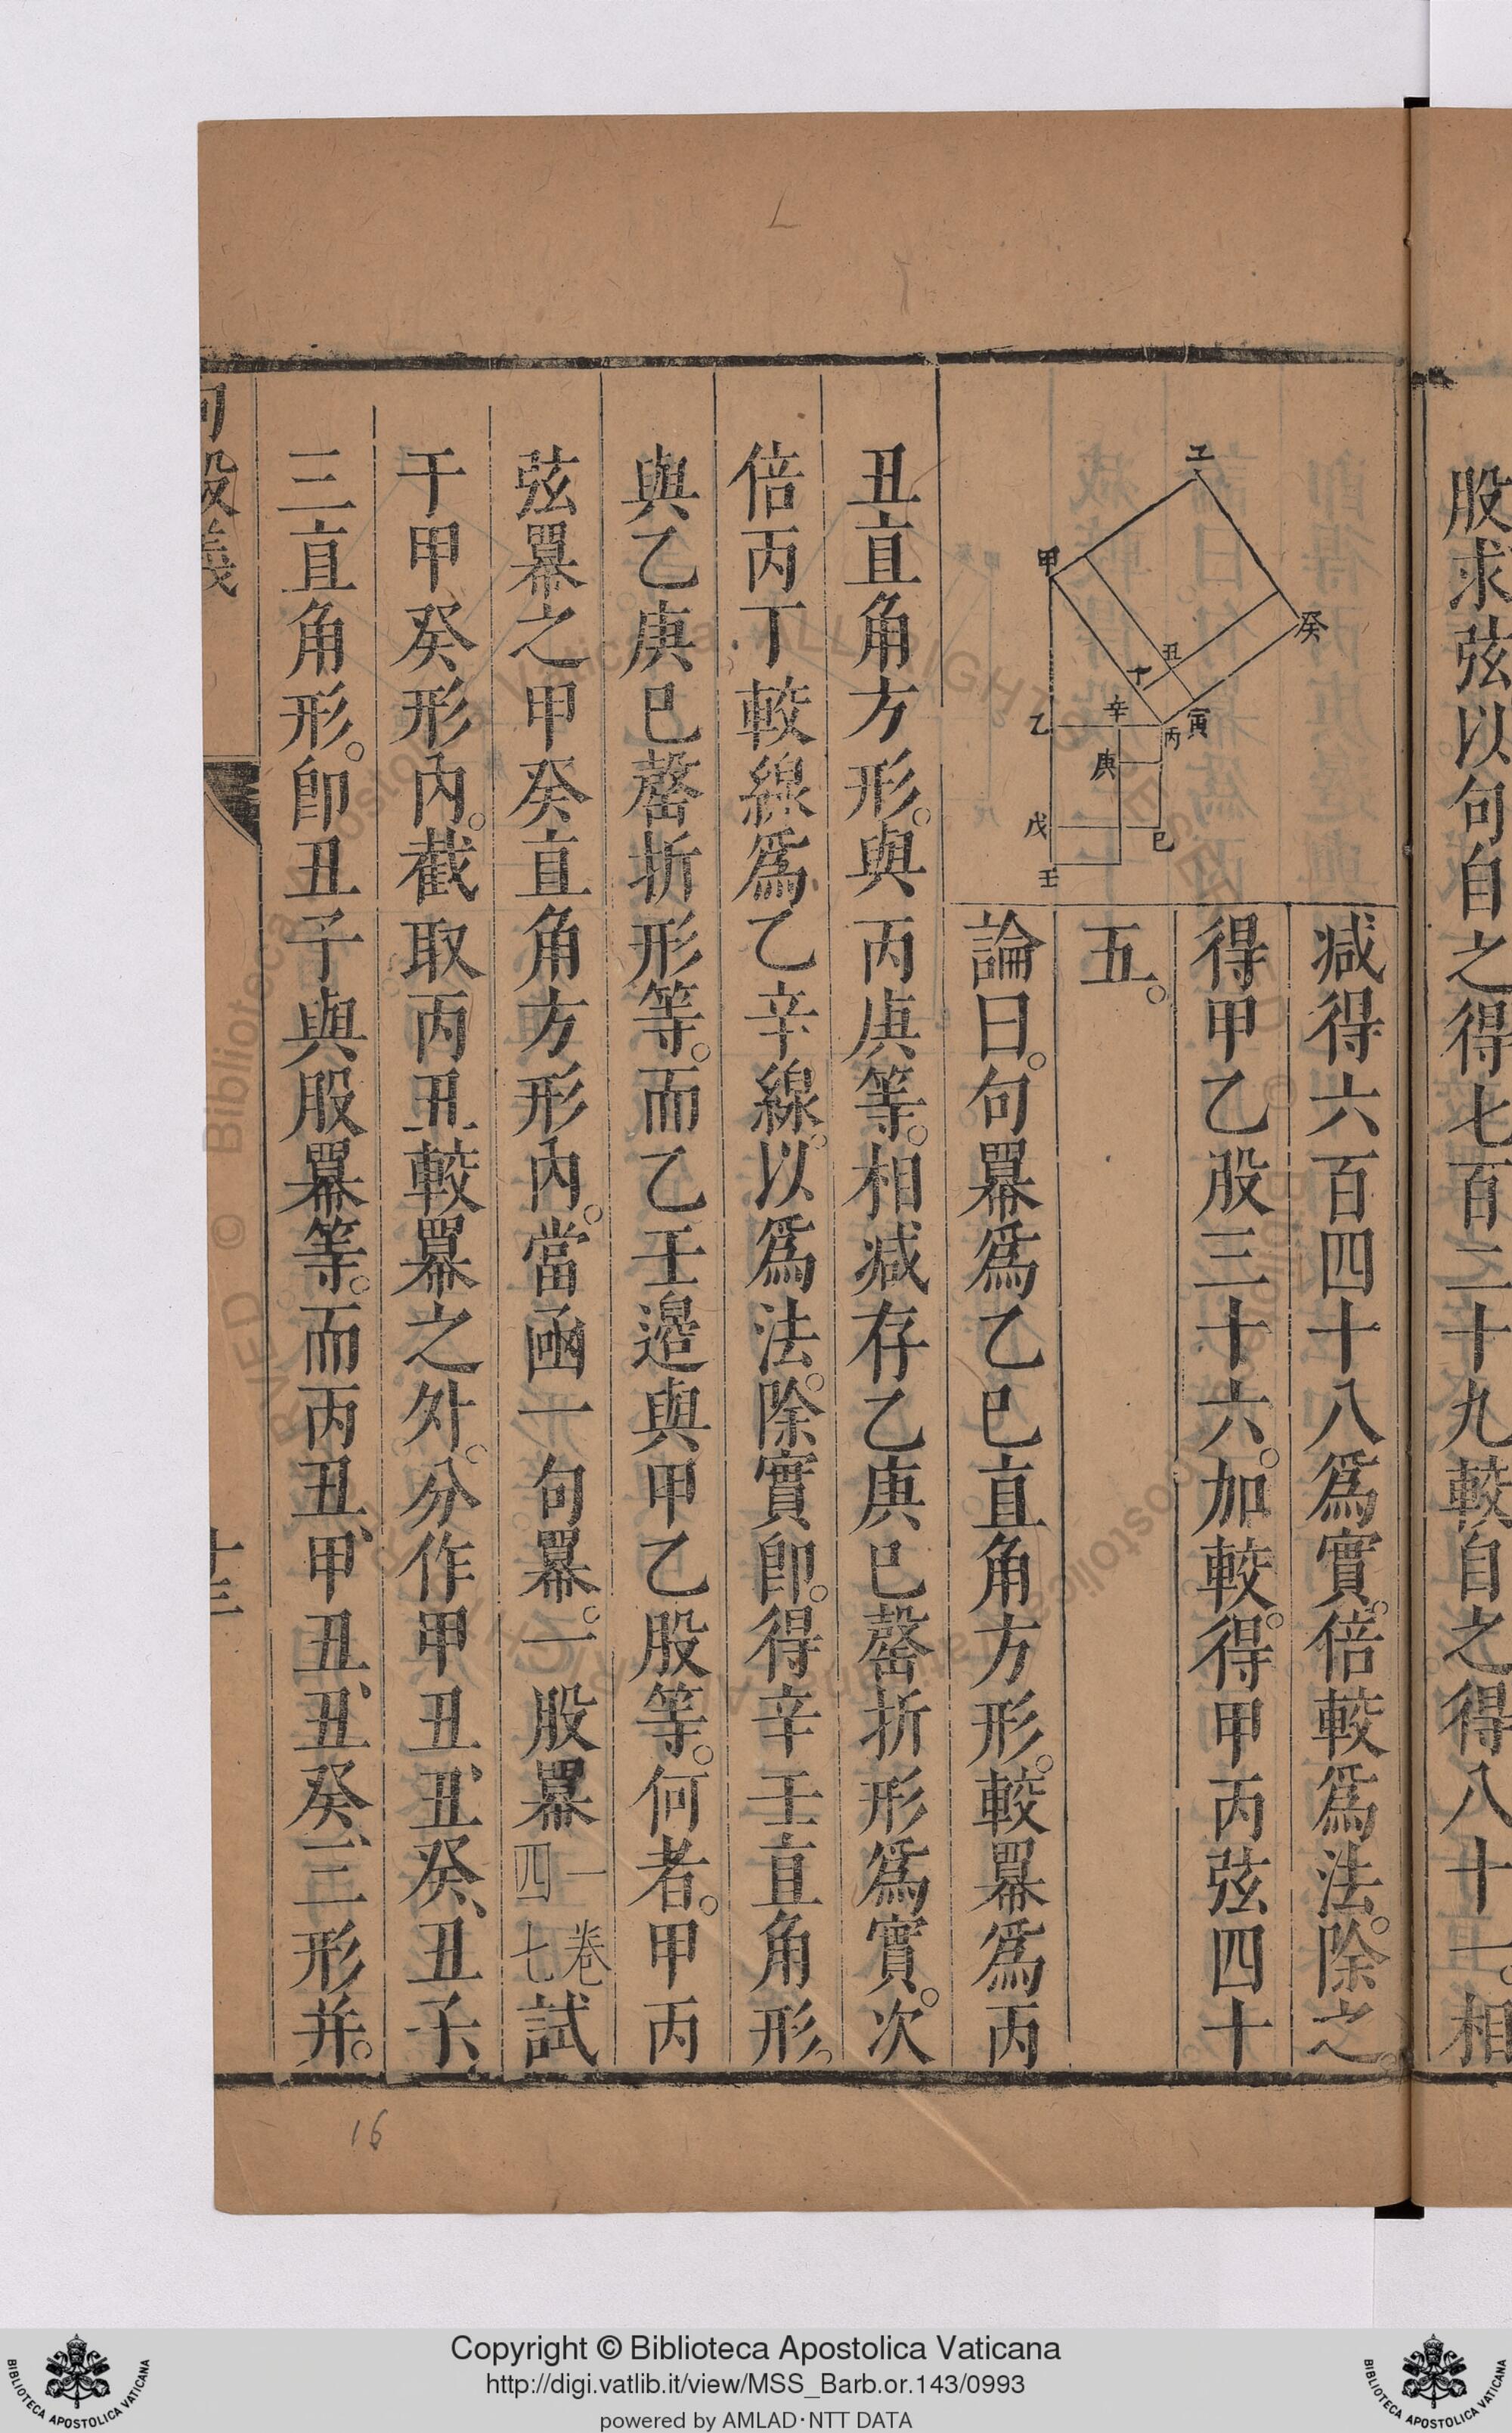 股求弦以句自之得七百二十九較自之得八十一。相
減得六百四十八爲實。倍較爲法。除之。
得甲乙股三十六。加較。得甲丙弦四十
五。
論曰。句羃爲乙巳直角方形。較羃爲丙
丑直角方形。與丙庚等。相减存乙庚巳罄折形爲實。次
倍丙丁較線爲乙辛線。以爲法。除實。卽得辛壬直角形。
與乙庚巳罄折形等。而乙壬邉與甲乙股等。何者。甲丙
弦羃之甲癸直角方形內。當函一句羃。一股羃一卷四七試
于甲癸形內。截取丙丑較羃之外。分作甲丑、丑癸、丑子、
三直角形。卽丑子與股羃等。而丙丑、甲丑、丑癸、三形并。
句股義
十三
子
甲
癸
丑
丁
寅
丙
辛
乙
庚
戊
巳
壬
16
Copyright © Biblioteca Apostolica Vaticana
http://digi.vatlib.it/view/MSS_Barb.or.143/0993
powered by AMLAD·NTT DATA
BIBLIOTECA APOSTOLICA VATICANA
BIBLIOTECA APOSTOLICA VATICANA